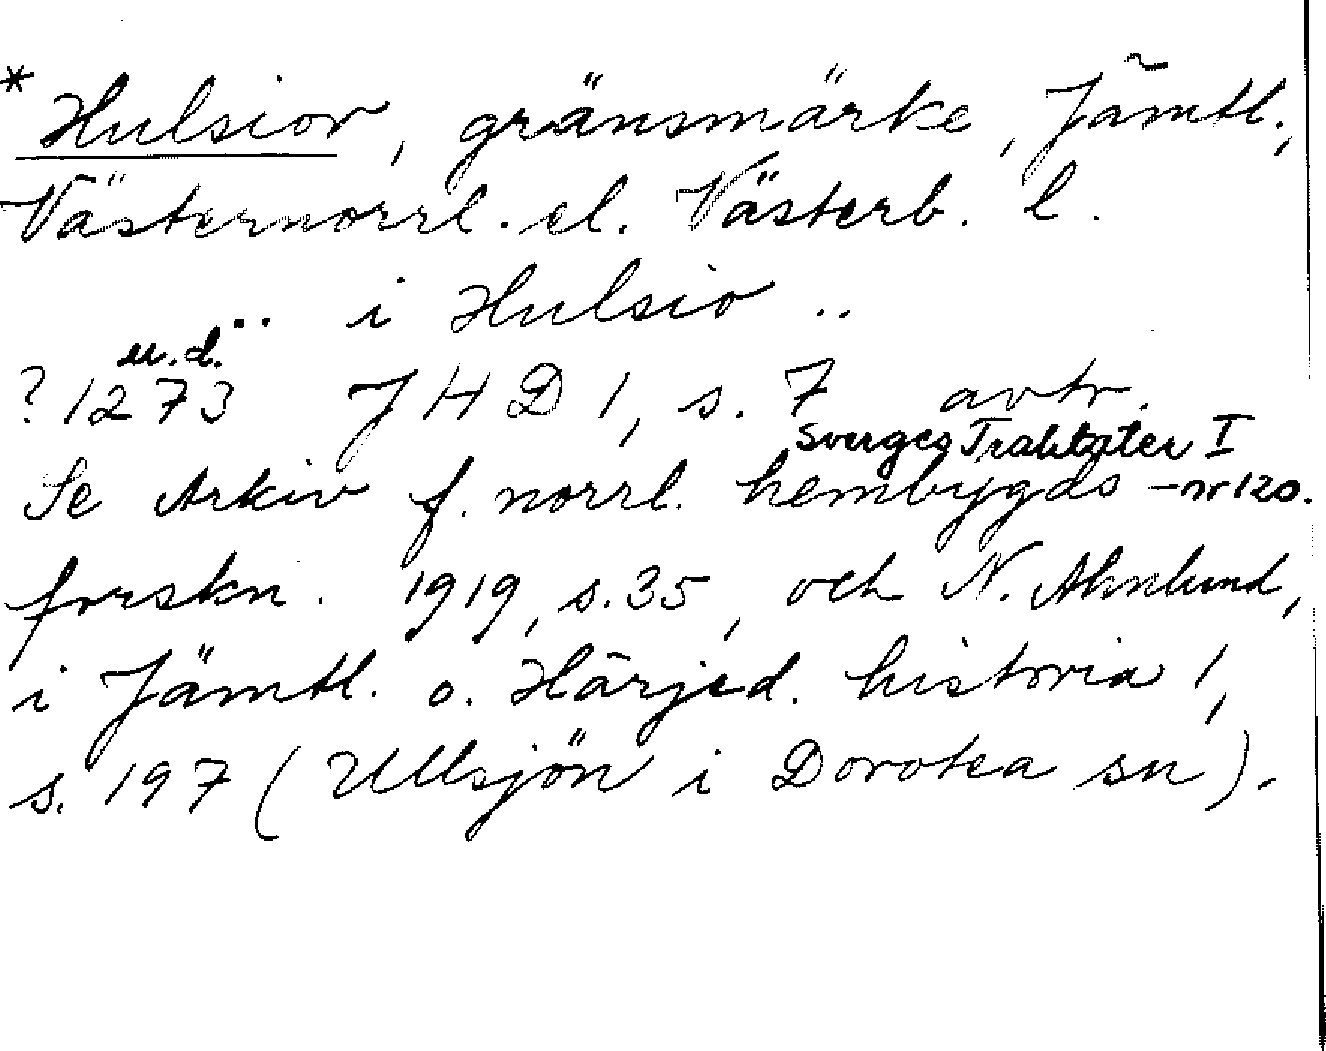 * Hulsior, gränsmärke, Jämtl.,
Västernorrl. el. Västerb. l.
.. i Hulsio ..
u.d.
? 1273 JHD 1, s. 7 avtr.
Sverges Traktater I
Se Arkiv f. norrl. hembygds - nr 120.
forskn. 1919, s. 35, och N. Ahnlund,
i Jämtl. o. Härjed. historia 1,
s. 197 (Ullsjön i Dorotea sn).